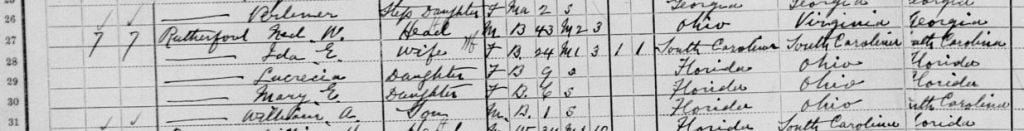 26 —— Step Daughter F Mu 2 S Georgia Georgia Georgia
27 7 7 Rutherford Ned W. Head M B 43 M2 3 Ohio Virginia Georgia
28 —— Ida E. Wife F B 24 M1 3 1 1 South Carolina South Carolina South Carolina
29 —— Lucrecia Daughter F B 9 S Florida Ohio Florida
30 —— Mary E. Daughter F B 6 S Florida Ohio Florida
31 —— William A. Son M B 1 S Florida Ohio South Carolina
Florida South Carolina Florida